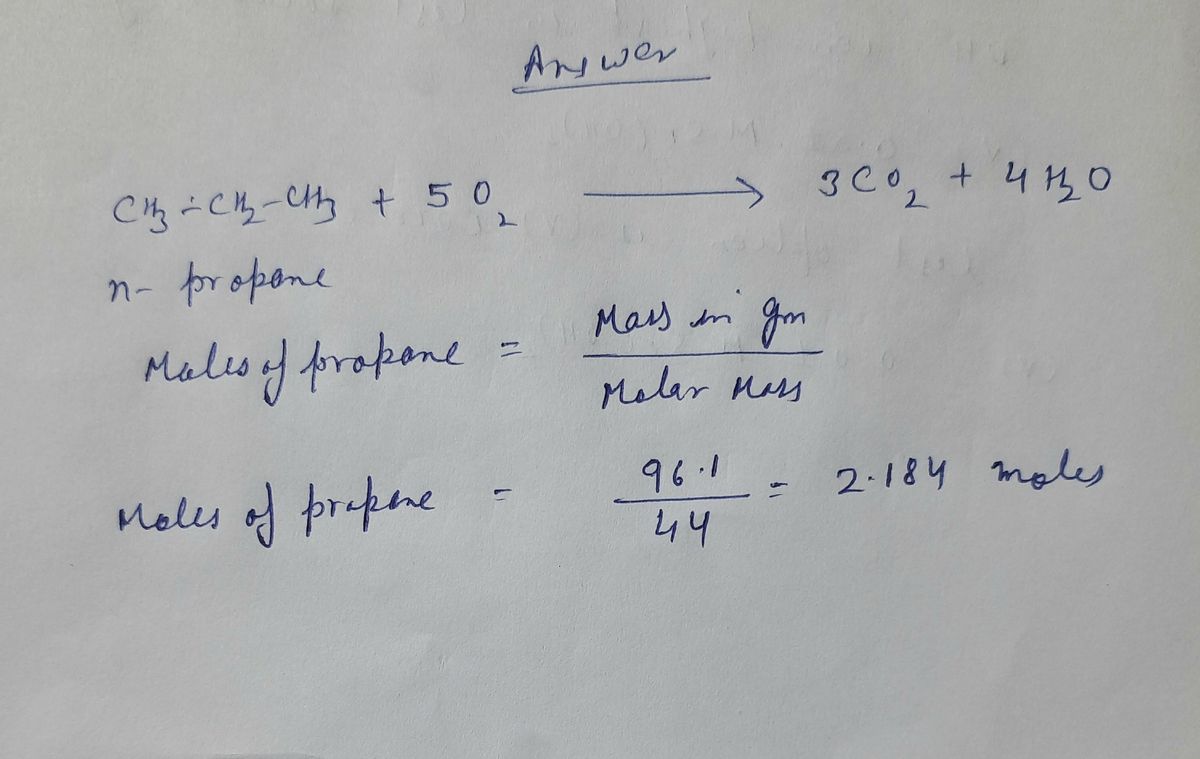 Answer
CH₃-CH₂-CH₃ + 5 O₂ → 3 CO₂ + 4 H₂O
n- propane
Moles of propane = Mass in gm / Molar Mass
Moles of propane = 96.1 / 44 = 2.184 moles